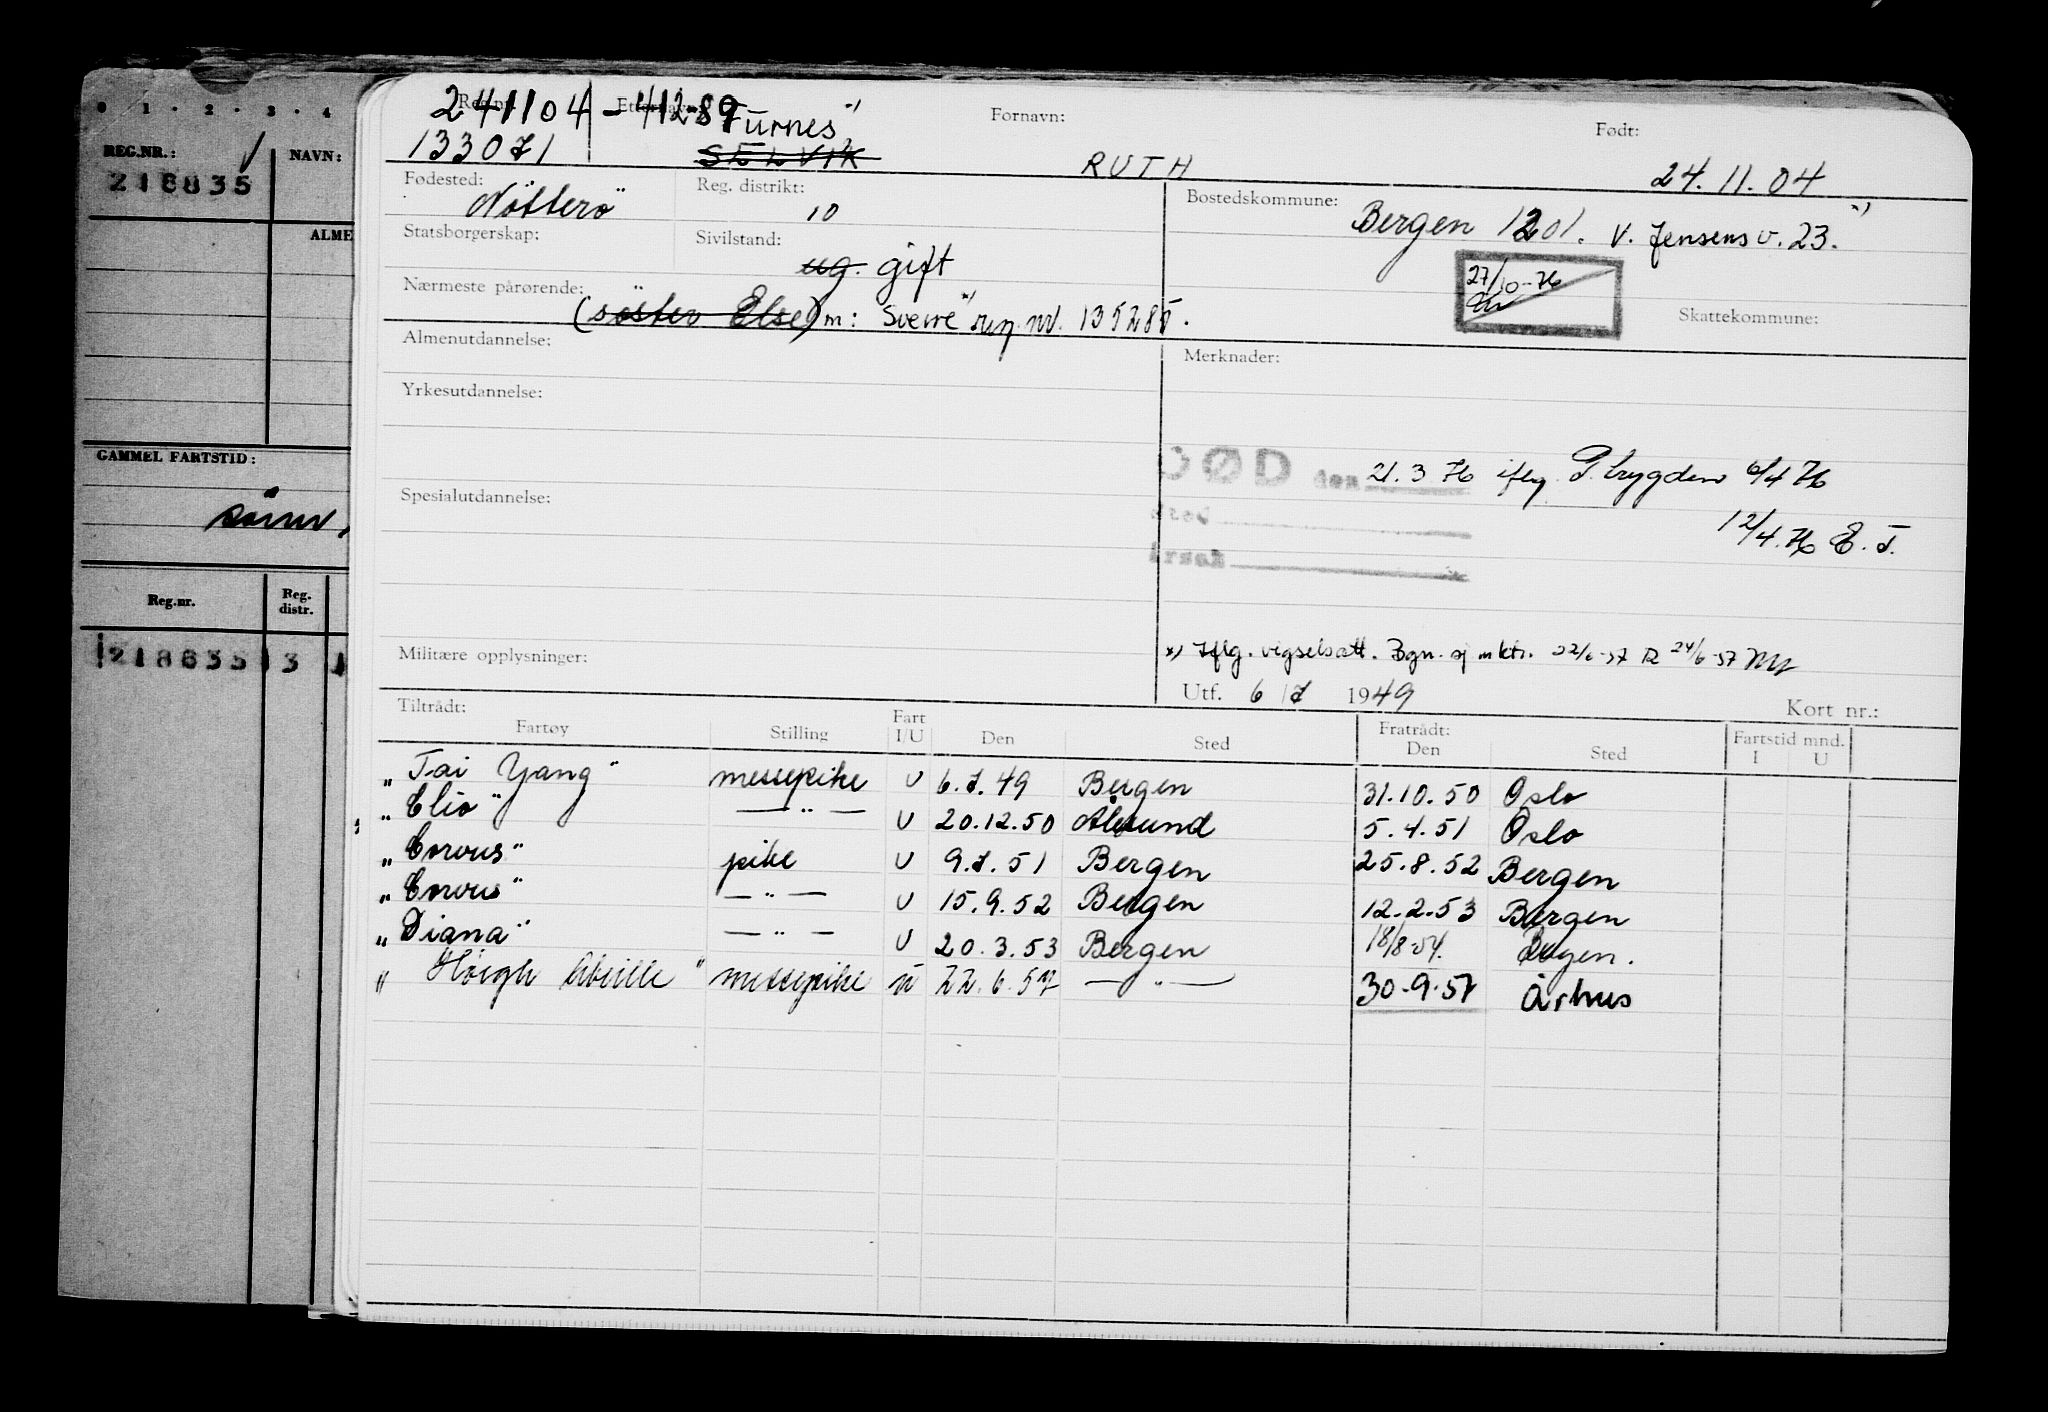 0 1 · 2 · 3 · 4
REG.NR.: NAVN:
218635
ALME
GAMMEL FARTSTID:
Reg.nr. Reg. distr.
218635 3 1
Reg.nr. Etternavn: Fornavn: Født:
241104 - 41289 Furnes" x)
133071 SELVIK RUTH 24.11.04
Fødested: Nötterö Reg. distrikt: 10 Bostedskommune: Bergen 1201. V. Jensens v. 23. x)
Statsborgerskap: Sivilstand: ug. gift
27/10-76
Nærmeste pårørende: (søster Else) m: Sverre x) reg. nr. 135285.
Skattekommune:
Almenutdannelse: Merknader:
Yrkesutdannelse:
DØD den 21.3 76 iflg. P. trygden 6/4 76
Spesialutdannelse:
Sted
12/4.76 E. T.
Årsak
Militære opplysninger:
x) Iflg. vigselsatt. Bgn. sj mktr. 22/6-57 24/6-57
Utf. 6/7 1949 Kort nr.:
Tiltrådt: Fratrådt:
Fartøy Stilling Fart I/U Den Sted Den Sted Fartstid mnd. I U
"Tai Yang" messepike U 6.7.49 Bergen 31.10.50 Oslo
"Clio" — " — U 20.12.50 Ålesund 5.4.51 Oslo
"Corvus" pike U 9.7.51 Bergen 25.8.52 Bergen
"Corvus" — " — U 15.9.52 Bergen 12.2.53 Bergen
"Diana" — " — U 20.3.53 Bergen 18/8-54. Bergen.
"Höegh Abeille" messepike u 22.6.57 — " — 30-9-57 Århus